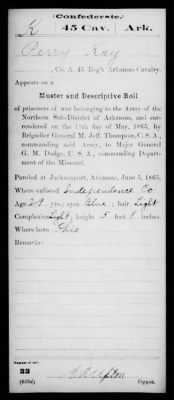 (Confederate.)
K 45 Cav. Ark.
Perry Kay
, Co. A, 45 Reg't Arkansas Cavalry.
Appears on a
Muster and Descriptive Roll
of prisoners of war belonging to the Army of the
Northern Sub-District of Arkansas, and sur-
rendered on the 11th day of May, 1865, by
Brigadier General M. Jeff. Thompson, C. S. A.,
commanding said Army, to Major General
G. M. Dodge, U. S. A., commanding Depart-
ment of the Missouri.
Paroled at Jacksonport, Arkansas, June 5, 1865.
Where enlisted Independence Co
Age 29 yrs; eyes Blue; hair Light
Complexion Light; height 5 feet 8 inches.
Where born Ohio
Remarks:
Number of roll:
33
(639d)
Copyist.